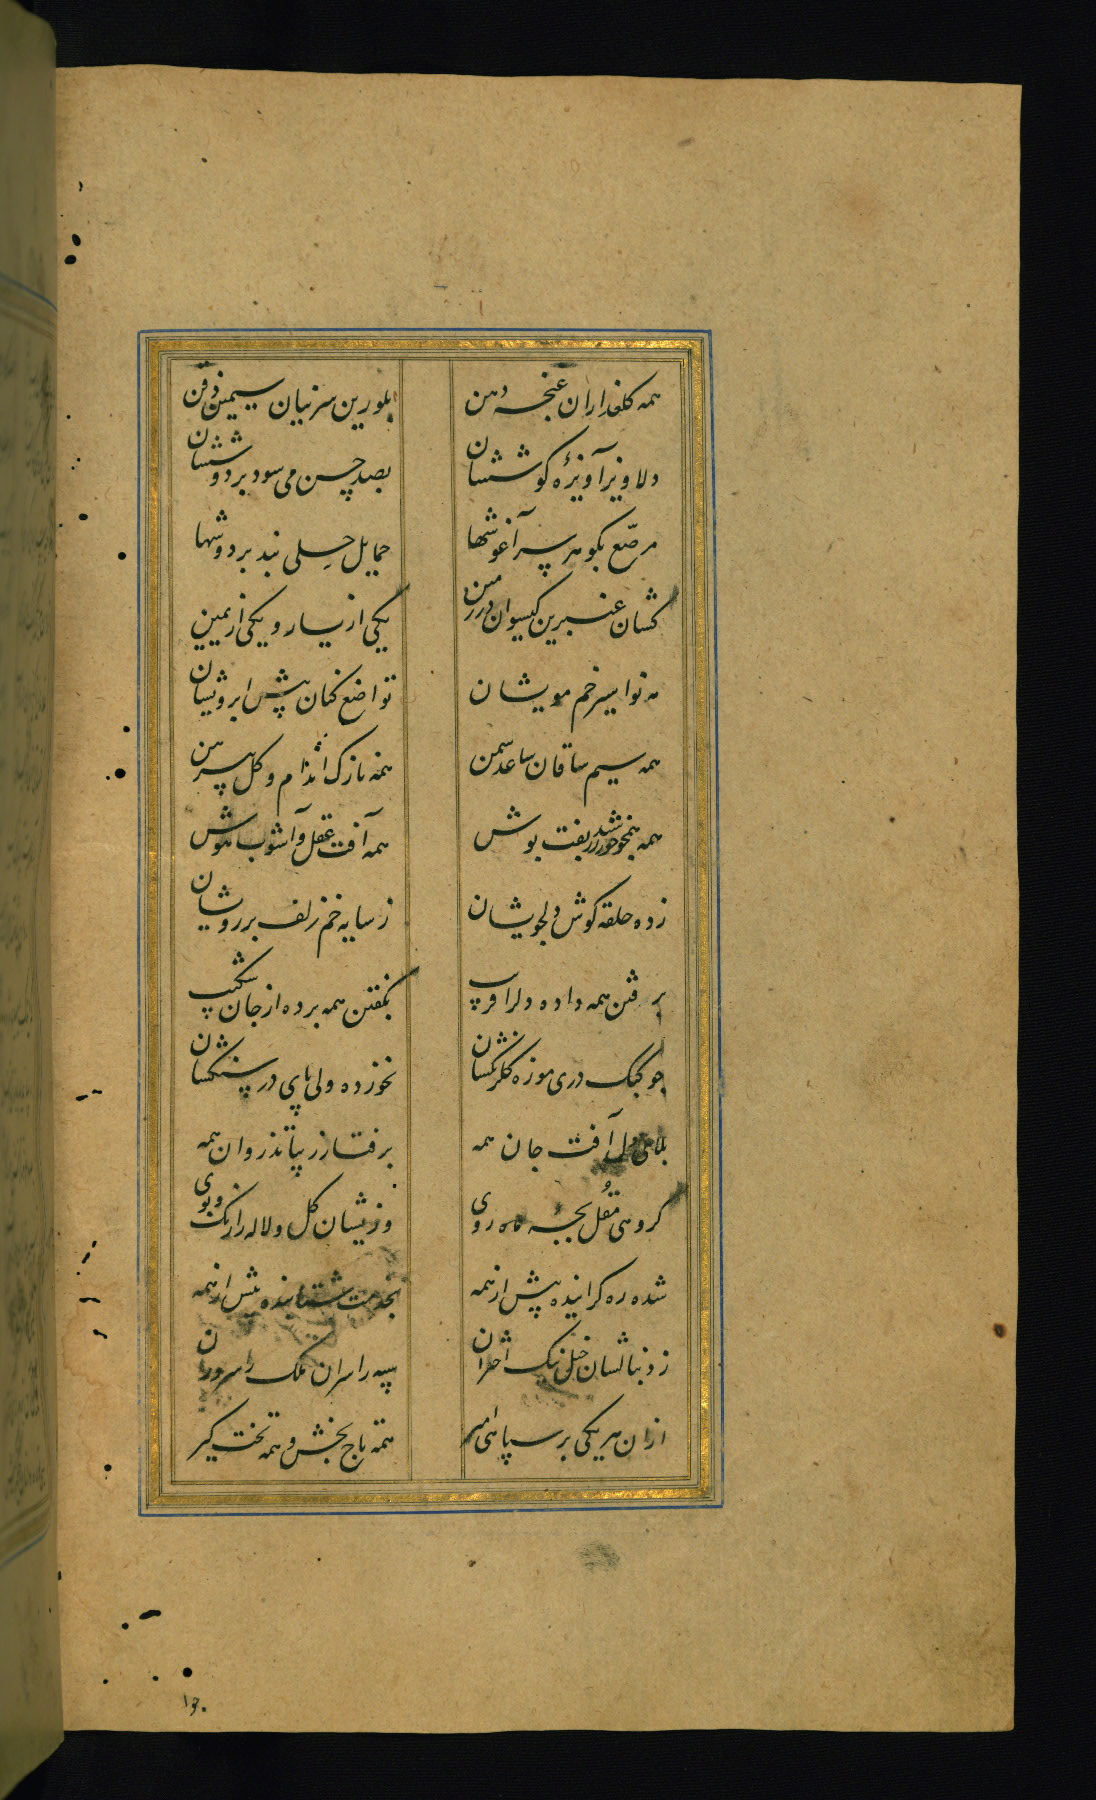 همه کلعذاران غنچه دهن بلورین سرنیان سیمین ذقن
دلاویز آویزهٔ گوششان بصد حسن می سود بر دوششان
مرصّع بگوهر پر آغوشها حمایل حلی بند بر دوشها
کشان عنبرین کیسوان در زمین یکی از یسار و یکی از یمین
مه نو اسیر خم مویشان تواضع کنان پیش ابرویشان
همه سیم ساقان ساعد سمن همه نازک اندام و کل پیرهن
همه همچو خورشید زربفت پوش همه آفت عقل و آشوب هوش
زده حلقه کوش دلجویشان ز سایه خم زلف بر رویشان
برفتن همه داده دلرا فریب بکفتن همه برده از جان شکیب
چو کبک دری موزه کلرنکشان نخورده ولی پای در سنکشان
بلای دل آفت جان همه برفتار زیبا تذروان همه
کروهی بجبه ماه روی وزیشان کل و لاله را رنک و بوی
شده ره کراینده پیش از همه بخدمت شتابنده بیش از همه
ز دنبالشان خیل نیک اختران سپه را سران ملک را سروران
ازان هر یکی بر سپاهی امیر همه تاج بخش و همه تخت کیر
جوا